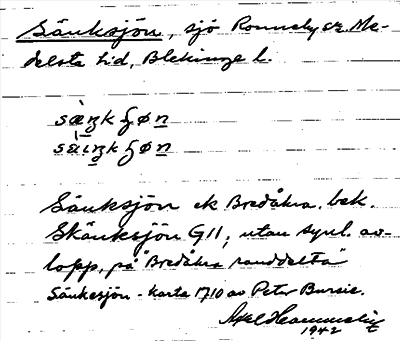 Sänksjön, sjö Ronneby sn. Me-
delsta hd, Blekinge l.
Sänksjön ek Bredåkra, bek.
Skänksjön G11, utan synl. av-
lopp, på "Bredåkra randdelta"
Sänkesjön - karta 1710 av Peter Bursie.
Axel
1942